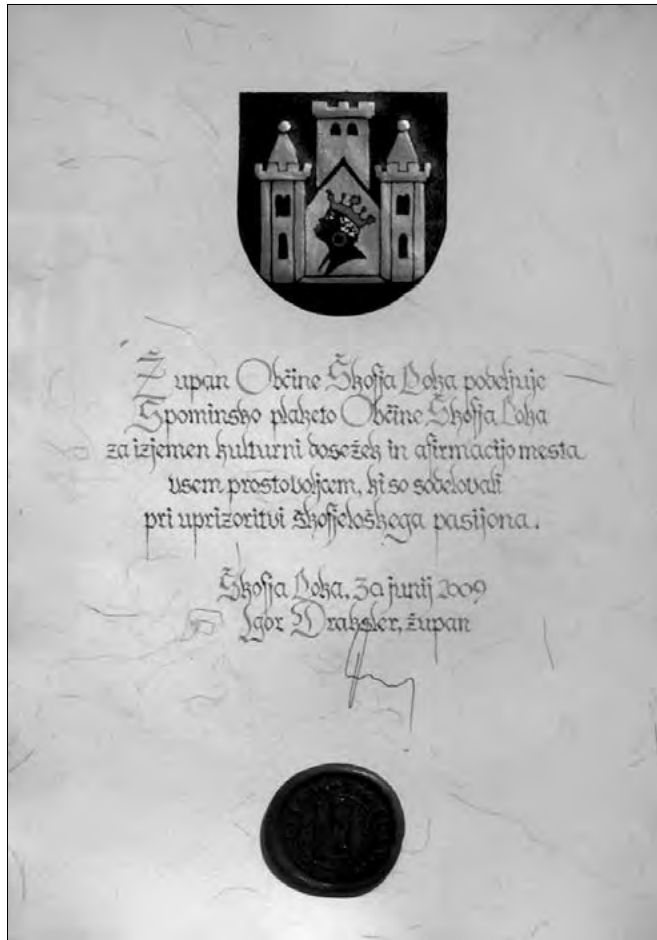 Župan Občine Škofja Loka podeljuje
Spominsko plaketo Občine Škofja Loka
za izjemen kulturni dosežek in afirmacijo mesta
vsem prostovoljcem, ki so sodelovali
pri uprizoritvi škofjeloškega pasijona.
Škofja Loka, 30 junij 2009
Igor Draksler, župan